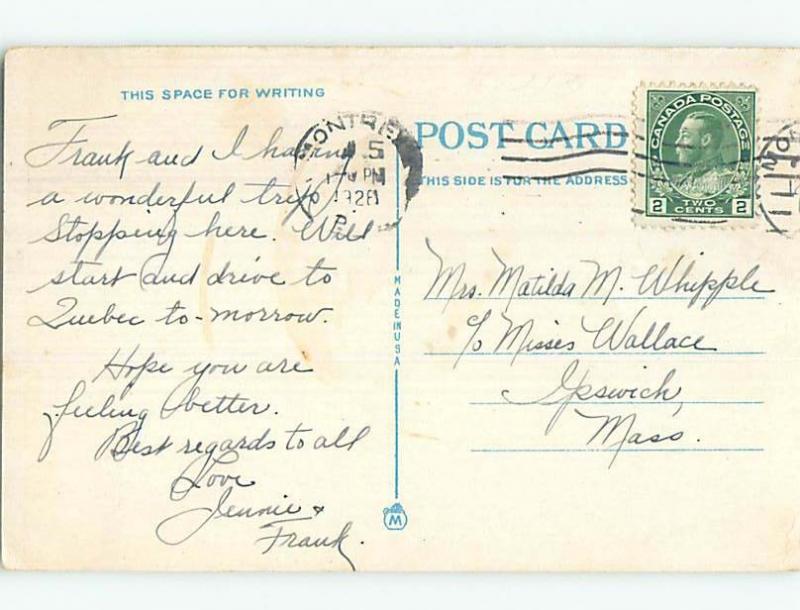 THIS SPACE FOR WRITING
Frank and I having
a wonderful trip
Stopping here. Will
start and drive to
Quebec to-morrow.
Hope you are
feeling better.
Best regards to all
Love
Jennie &
Frank.
MADE IN USA
M
POST CARD
THIS SIDE IS FOR THE ADDRESS
5
PM
1928
P.
CANADA POSTAGE
2 TWO CENTS 2
Mrs. Matilda M. Whipple
c/o Misses Wallace
Ipswich,
Mass.